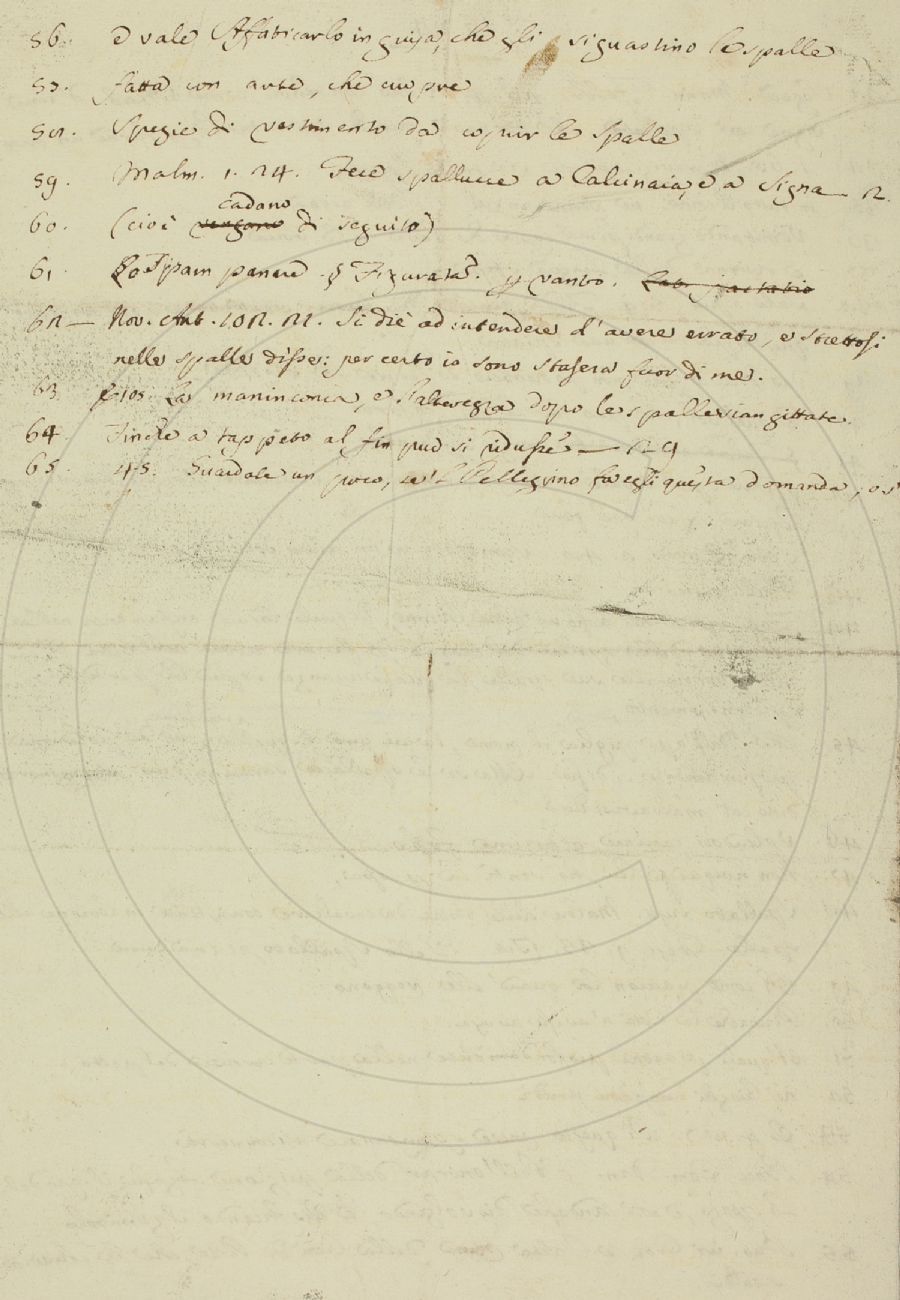 56. e vale Affaticarlo in guisa, che gli si guastino le spalle
57. fatta con arte, che cuopre
58. Spezie di vestimento da coprir le spalle
59. Malm. 1. 24. Fece spallucce a Calcinaia, e a Signa — 2.
60. (cioè vengono cadano di seguito)
61. panere § Figurat. p vanto. Lat. jactatio
62 — Nov. Ant. 102. 22. Si diè ad intendere d'avere errato, e strettosi
nelle spalle disse: per certo io sono stasera fuor di me.
63. La maninconia, e l'alterezza dopo le spalle sian gittate.
64. a tappeto al fin pur si ridusse — 29
65. 45. Guardate un poco, se 'l Pellegrino fa egli questa domanda, o s'